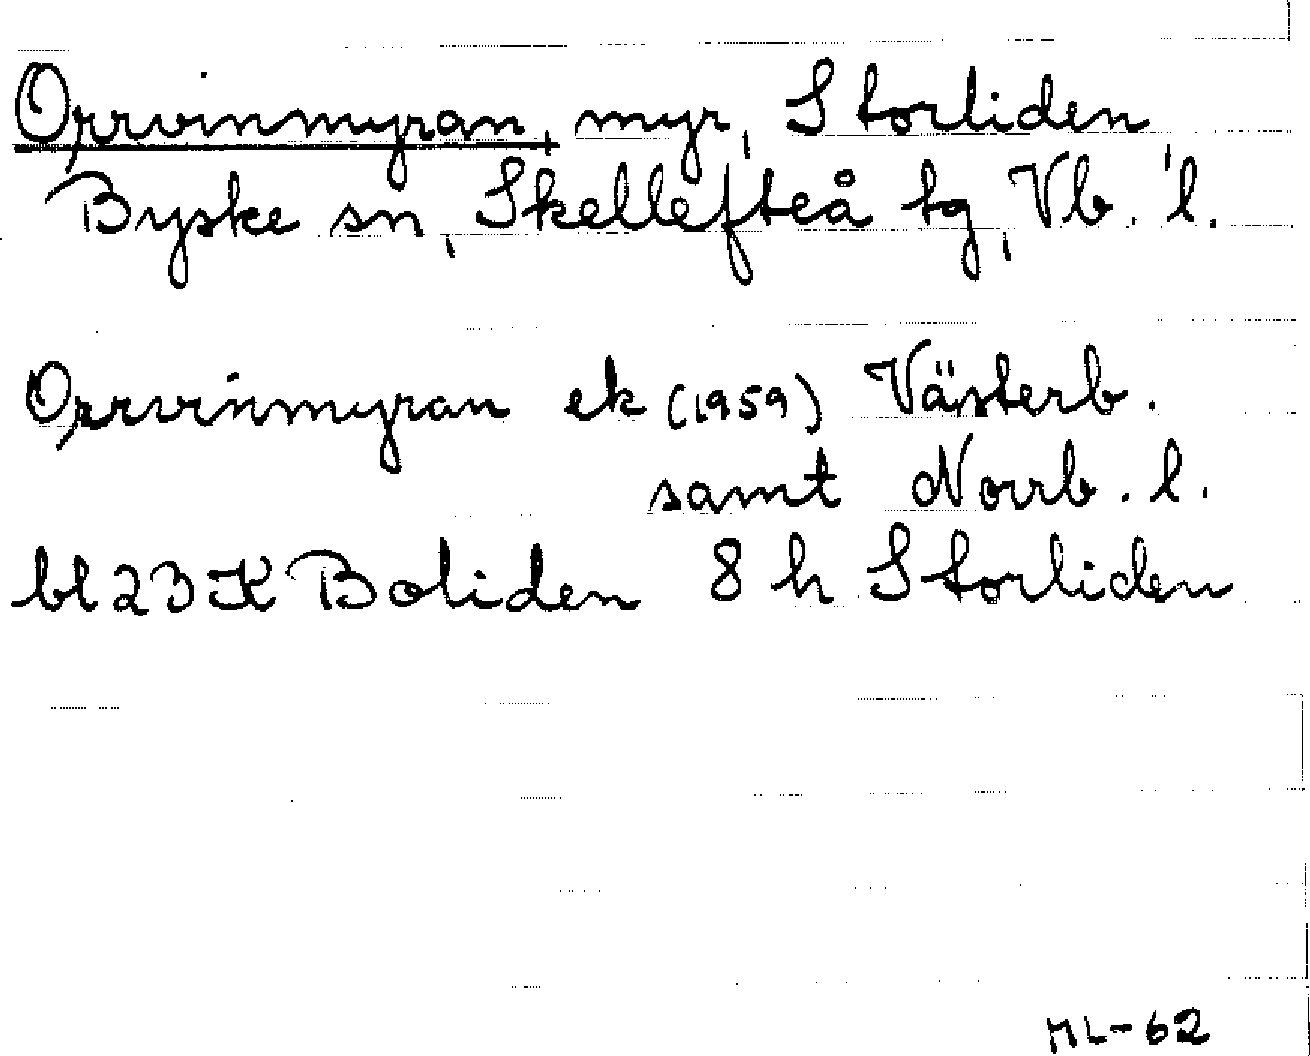 Orrvinmyran, myr, Storliden,
Byske sn, Skellefteå tg, Vb. l.
Orrvinmyran ek (1959) Västerb.
samt Norrb. l.
bl 23 K Boliden 8 h Storliden
ML-62